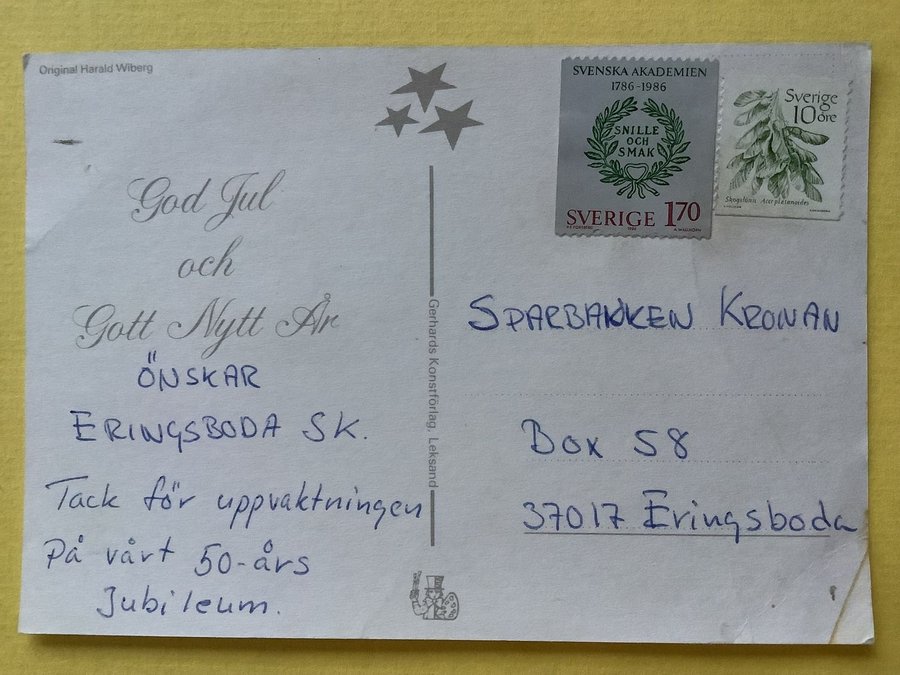 Original Harald Wiberg
God Jul
och
Gott Nytt År
ÖNSKAR
ERINGSBODA SK.
Tack för uppvaktningen
På vårt 50-års
Jubileum.
Gerhards Konstförlag, Leksand
SVENSKA AKADEMIEN
1786-1986
SNILLE
OCH
SMAK
SVERIGE 170
Sverige
10 öre
Skogslönn Acer platanoides
SPARBANKEN KRONAN
Box 58
37017 Eringsboda